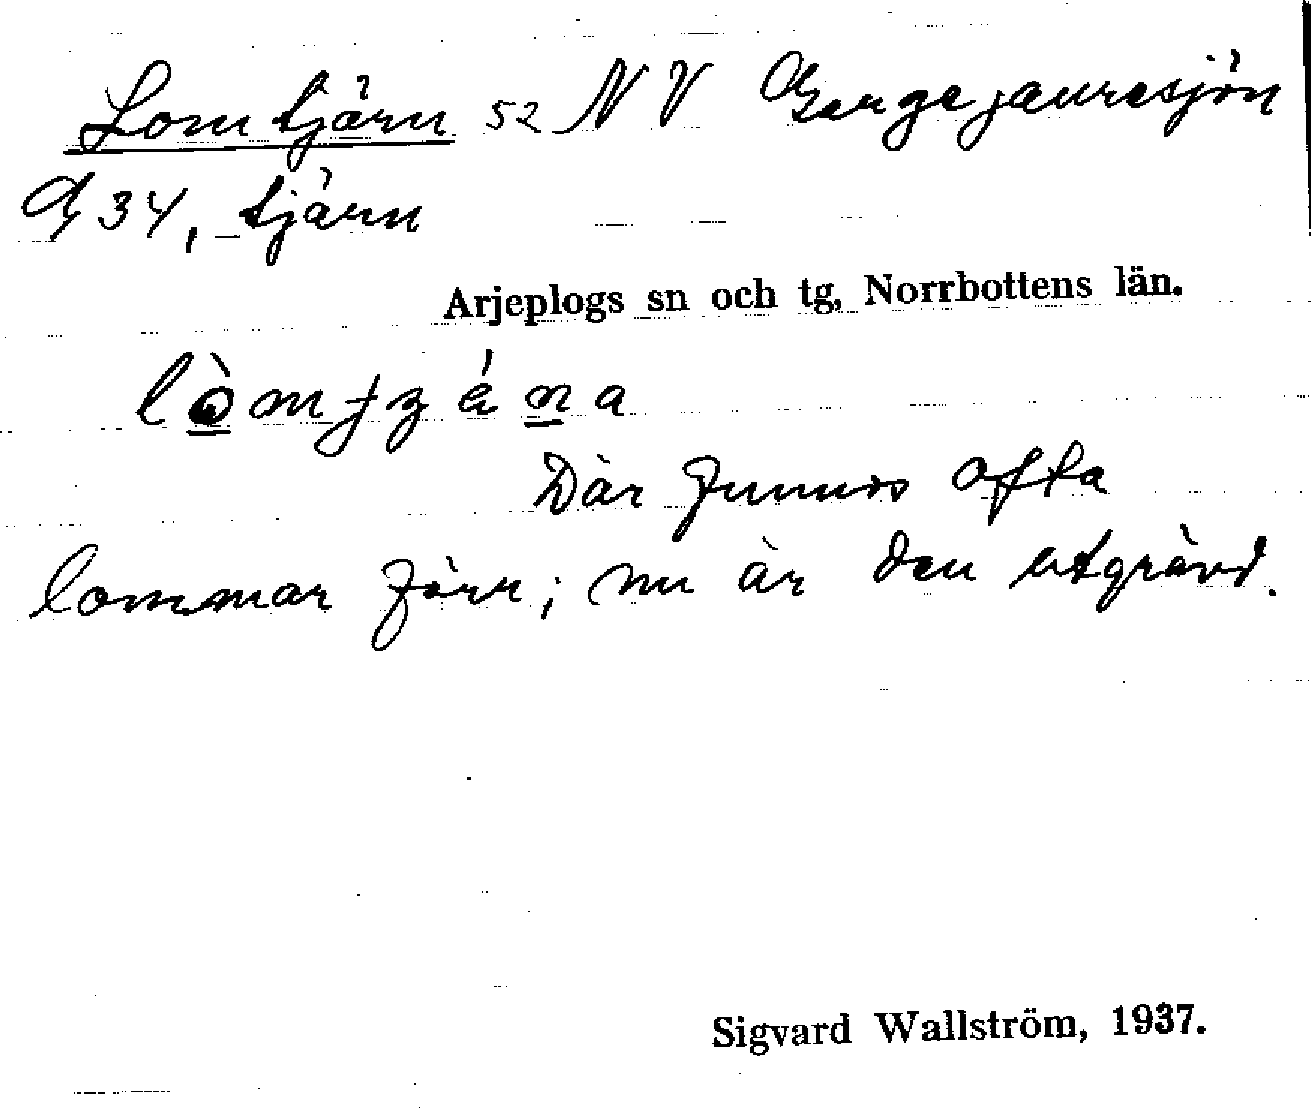 Lomtjärn 52 NV Gergejauresjön
G 34, tjärn
Arjeplogs sn och tg, Norrbottens län.
Där funnos ofta
lommar förr; nu är den utgrävd.
Sigvard Wallström, 1937.